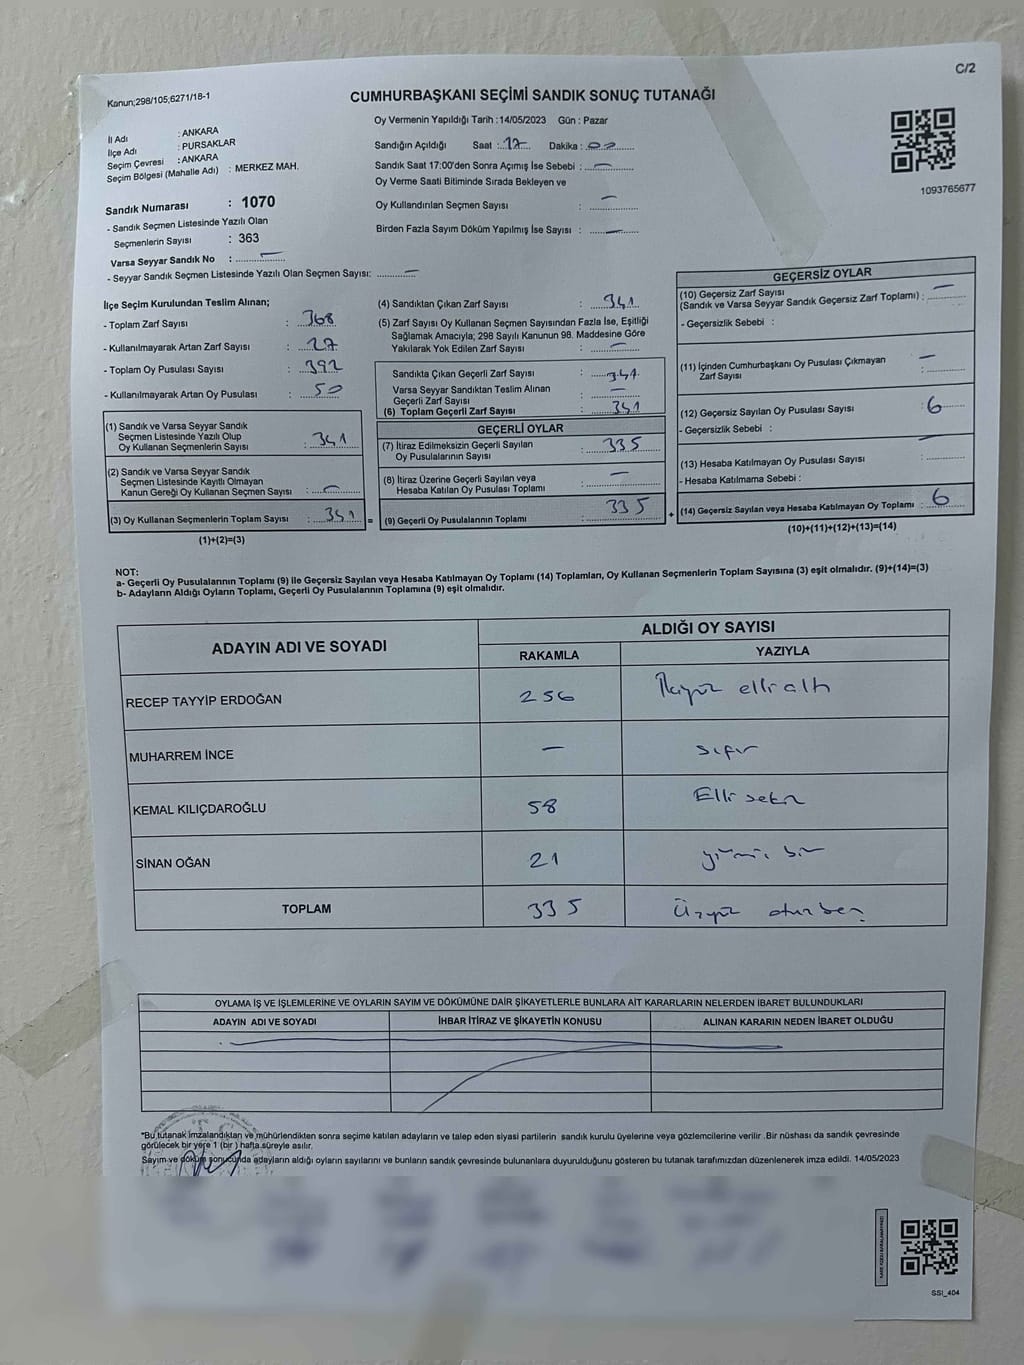 C/2
Kanun;298/105;6271/18-1
CUMHURBAŞKANI SEÇİMİ SANDIK SONUÇ TUTANAĞI
Oy Vermenin Yapıldığı Tarih :14/05/2023 Gün : Pazar
İl Adı : ANKARA
İlçe Adı : PURSAKLAR
Seçim Çevresi : ANKARA
Seçim Bölgesi (Mahalle Adı) : MERKEZ MAH.
Sandığın Açıldığı Saat : 17 Dakika : 00
Sandık Saat 17:00'den Sonra Açımış İse Sebebi : —
Oy Verme Saati Bitiminde Sırada Bekleyen ve
Oy Kullandırılan Seçmen Sayısı : —
Birden Fazla Sayım Döküm Yapılmış İse Sayısı : —
1093765677
Sandık Numarası : 1070
- Sandık Seçmen Listesinde Yazılı Olan
Seçmenlerin Sayısı : 363
Varsa Seyyar Sandık No : —
- Seyyar Sandık Seçmen Listesinde Yazılı Olan Seçmen Sayısı: —
İlçe Seçim Kurulundan Teslim Alınan;
- Toplam Zarf Sayısı : 368
- Kullanılmayarak Artan Zarf Sayısı : 27
- Toplam Oy Pusulası Sayısı : 392
- Kullanılmayarak Artan Oy Pusulası : 50
(1) Sandık ve Varsa Seyyar Sandık
Seçmen Listesinde Yazılı Olup
Oy Kullanan Seçmenlerin Sayısı : 341
(2) Sandık ve Varsa Seyyar Sandık
Seçmen Listesinde Kayıtlı Olmayan
Kanun Gereği Oy Kullanan Seçmen Sayısı : —
(3) Oy Kullanan Seçmenlerin Toplam Sayısı : 341 =
(1)+(2)=(3)
(4) Sandıktan Çıkan Zarf Sayısı : 341
(5) Zarf Sayısı Oy Kullanan Seçmen Sayısından Fazla İse, Eşitliği
Sağlamak Amacıyla; 298 Sayılı Kanunun 98. Maddesine Göre
Yakılarak Yok Edilen Zarf Sayısı : —
Sandıkta Çıkan Geçerli Zarf Sayısı : 341
Varsa Seyyar Sandıktan Teslim Alınan
Geçerli Zarf Sayısı : —
(6) Toplam Geçerli Zarf Sayısı : 341
GEÇERLİ OYLAR
(7) İtiraz Edilmeksizin Geçerli Sayılan
Oy Pusulalarının Sayısı : 335
(8) İtiraz Üzerine Geçerli Sayılan veya
Hesaba Katılan Oy Pusulası Toplamı : —
(9) Geçerli Oy Pusulalarının Toplamı : 335 +
GEÇERSİZ OYLAR
(10) Geçersiz Zarf Sayısı
(Sandık ve Varsa Seyyar Sandık Geçersiz Zarf Toplamı) : —
- Geçersizlik Sebebi :
(11) İçinden Cumhurbaşkanı Oy Pusulası Çıkmayan
Zarf Sayısı : —
(12) Geçersiz Sayılan Oy Pusulası Sayısı : 6
- Geçersizlik Sebebi :
(13) Hesaba Katılmayan Oy Pusulası Sayısı : —
- Hesaba Katılmama Sebebi :
(14) Geçersiz Sayılan veya Hesaba Katılmayan Oy Toplamı : 6
(10)+(11)+(12)+(13)=(14)
NOT:
a- Geçerli Oy Pusulalarının Toplamı (9) ile Geçersiz Sayılan veya Hesaba Katılmayan Oy Toplamı (14) Toplamları, Oy Kullanan Seçmenlerin Toplam Sayısına (3) eşit olmalıdır. (9)+(14)=(3)
b- Adayların Aldığı Oyların Toplamı, Geçerli Oy Pusulalarının Toplamına (9) eşit olmalıdır.
ADAYIN ADI VE SOYADI ALDIĞI OY SAYISI
RAKAMLA YAZIYLA
RECEP TAYYİP ERDOĞAN 256 İkiyüz elli altı
MUHARREM İNCE — sıfır
KEMAL KILIÇDAROĞLU 58 Elli sekiz
SİNAN OĞAN 21 yirmi bir
TOPLAM 335 Üçyüz otuzbeş
OYLAMA İŞ VE İŞLEMLERİNE VE OYLARIN SAYIM VE DÖKÜMÜNE DAİR ŞİKAYETLERLE BUNLARA AİT KARARLARIN NELERDEN İBARET BULUNDUKLARI
ADAYIN ADI VE SOYADI İHBAR İTİRAZ VE ŞİKAYETİN KONUSU ALINAN KARARIN NEDEN İBARET OLDUĞU
*Bu tutanak imzalandıktan ve mühürlendikten sonra seçime katılan adayların ve talep eden siyasi partilerin sandık kurulu üyelerine veya gözlemcilerine verilir .Bir nüshası da sandık çevresinde
görülecek bir yere 1 (bir ) hafta süreyle asılır.
Sayım ve döküm sonucunda adayların aldığı oyların sayılarını ve bunların sandık çevresinde bulunanlara duyurulduğunu gösteren bu tutanak tarafımızdan düzenlenerek imza edildi. 14/05/2023
SSI_404